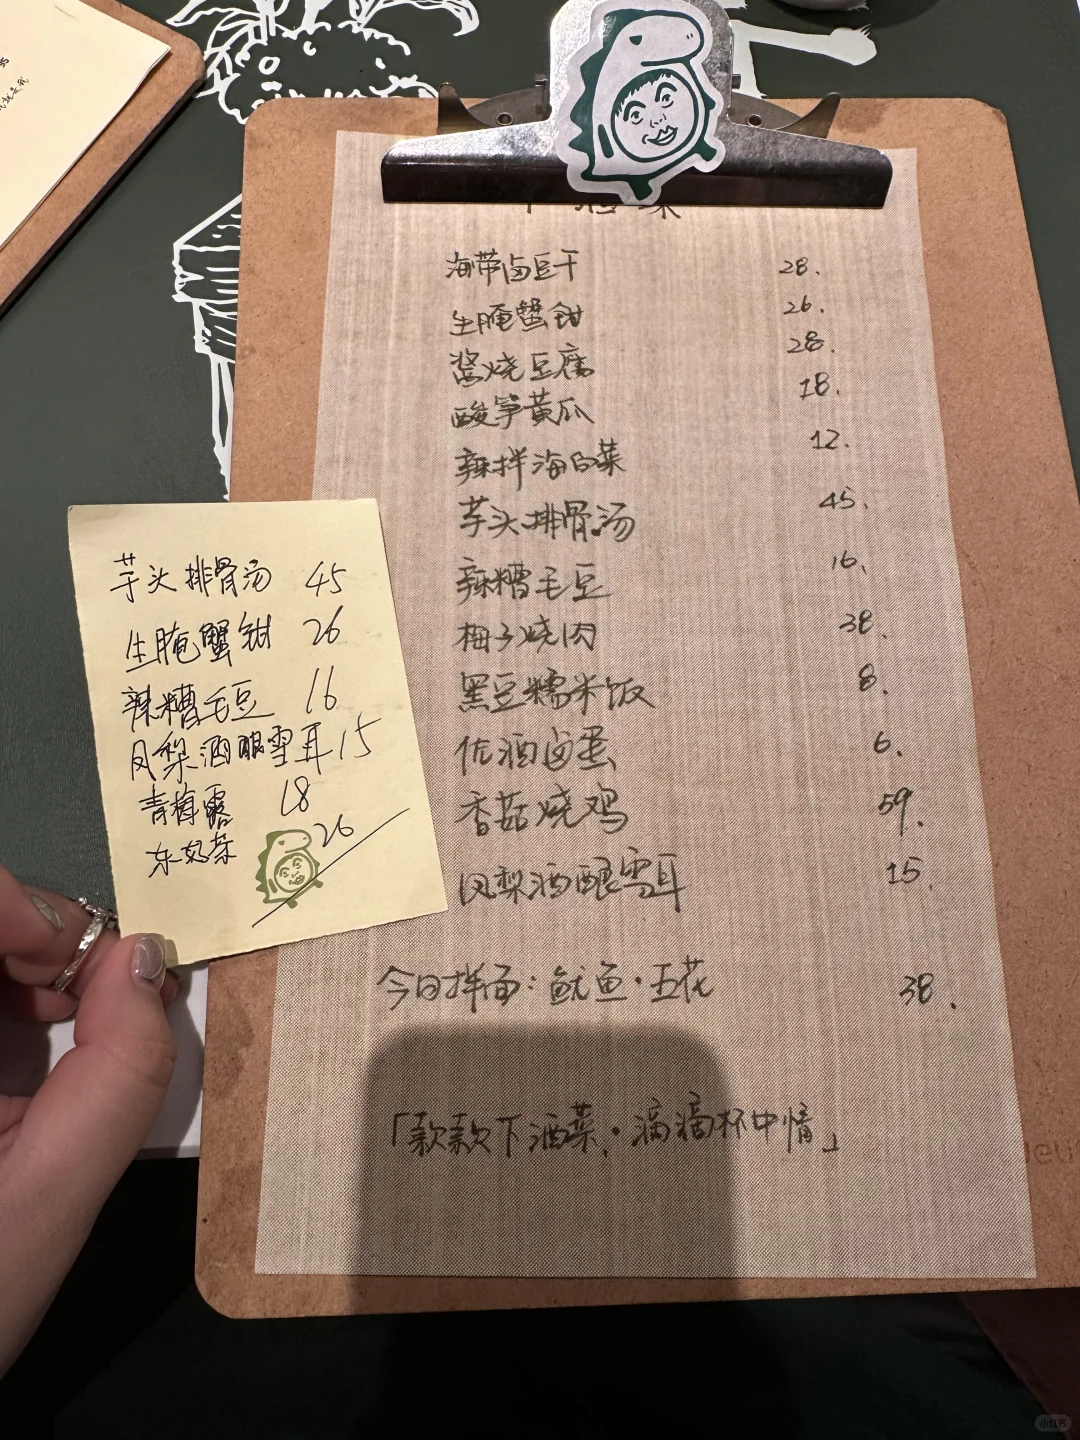 芋头排骨汤 45
生腌蟹钳 26
辣糟毛豆 16
凤梨酒酿雪耳 15
青梅露 18
东奶茶 26
海带卤豆干 28.
生腌蟹钳 26.
酱烧豆腐 28.
酸笋黄瓜 18.
辣拌海白菜 12.
芋头排骨汤 45.
辣糟毛豆 16.
梅子烧肉 38.
黑豆糯米饭 8.
佐酒卤蛋 6.
香菇烧鸡 59.
凤梨酒酿雪耳 15.
今日拌面：鱿鱼·五花 38.
「款款下酒菜，滴滴杯中情」
小红书